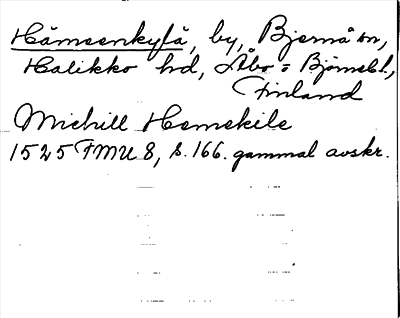 Hämeenkylä, by, Bjernå sn,
Halikko hd, Åbo = Björnebl.,
Finland
Michill Hemekile
1525 FMU 8, s. 166. gammal avskr.